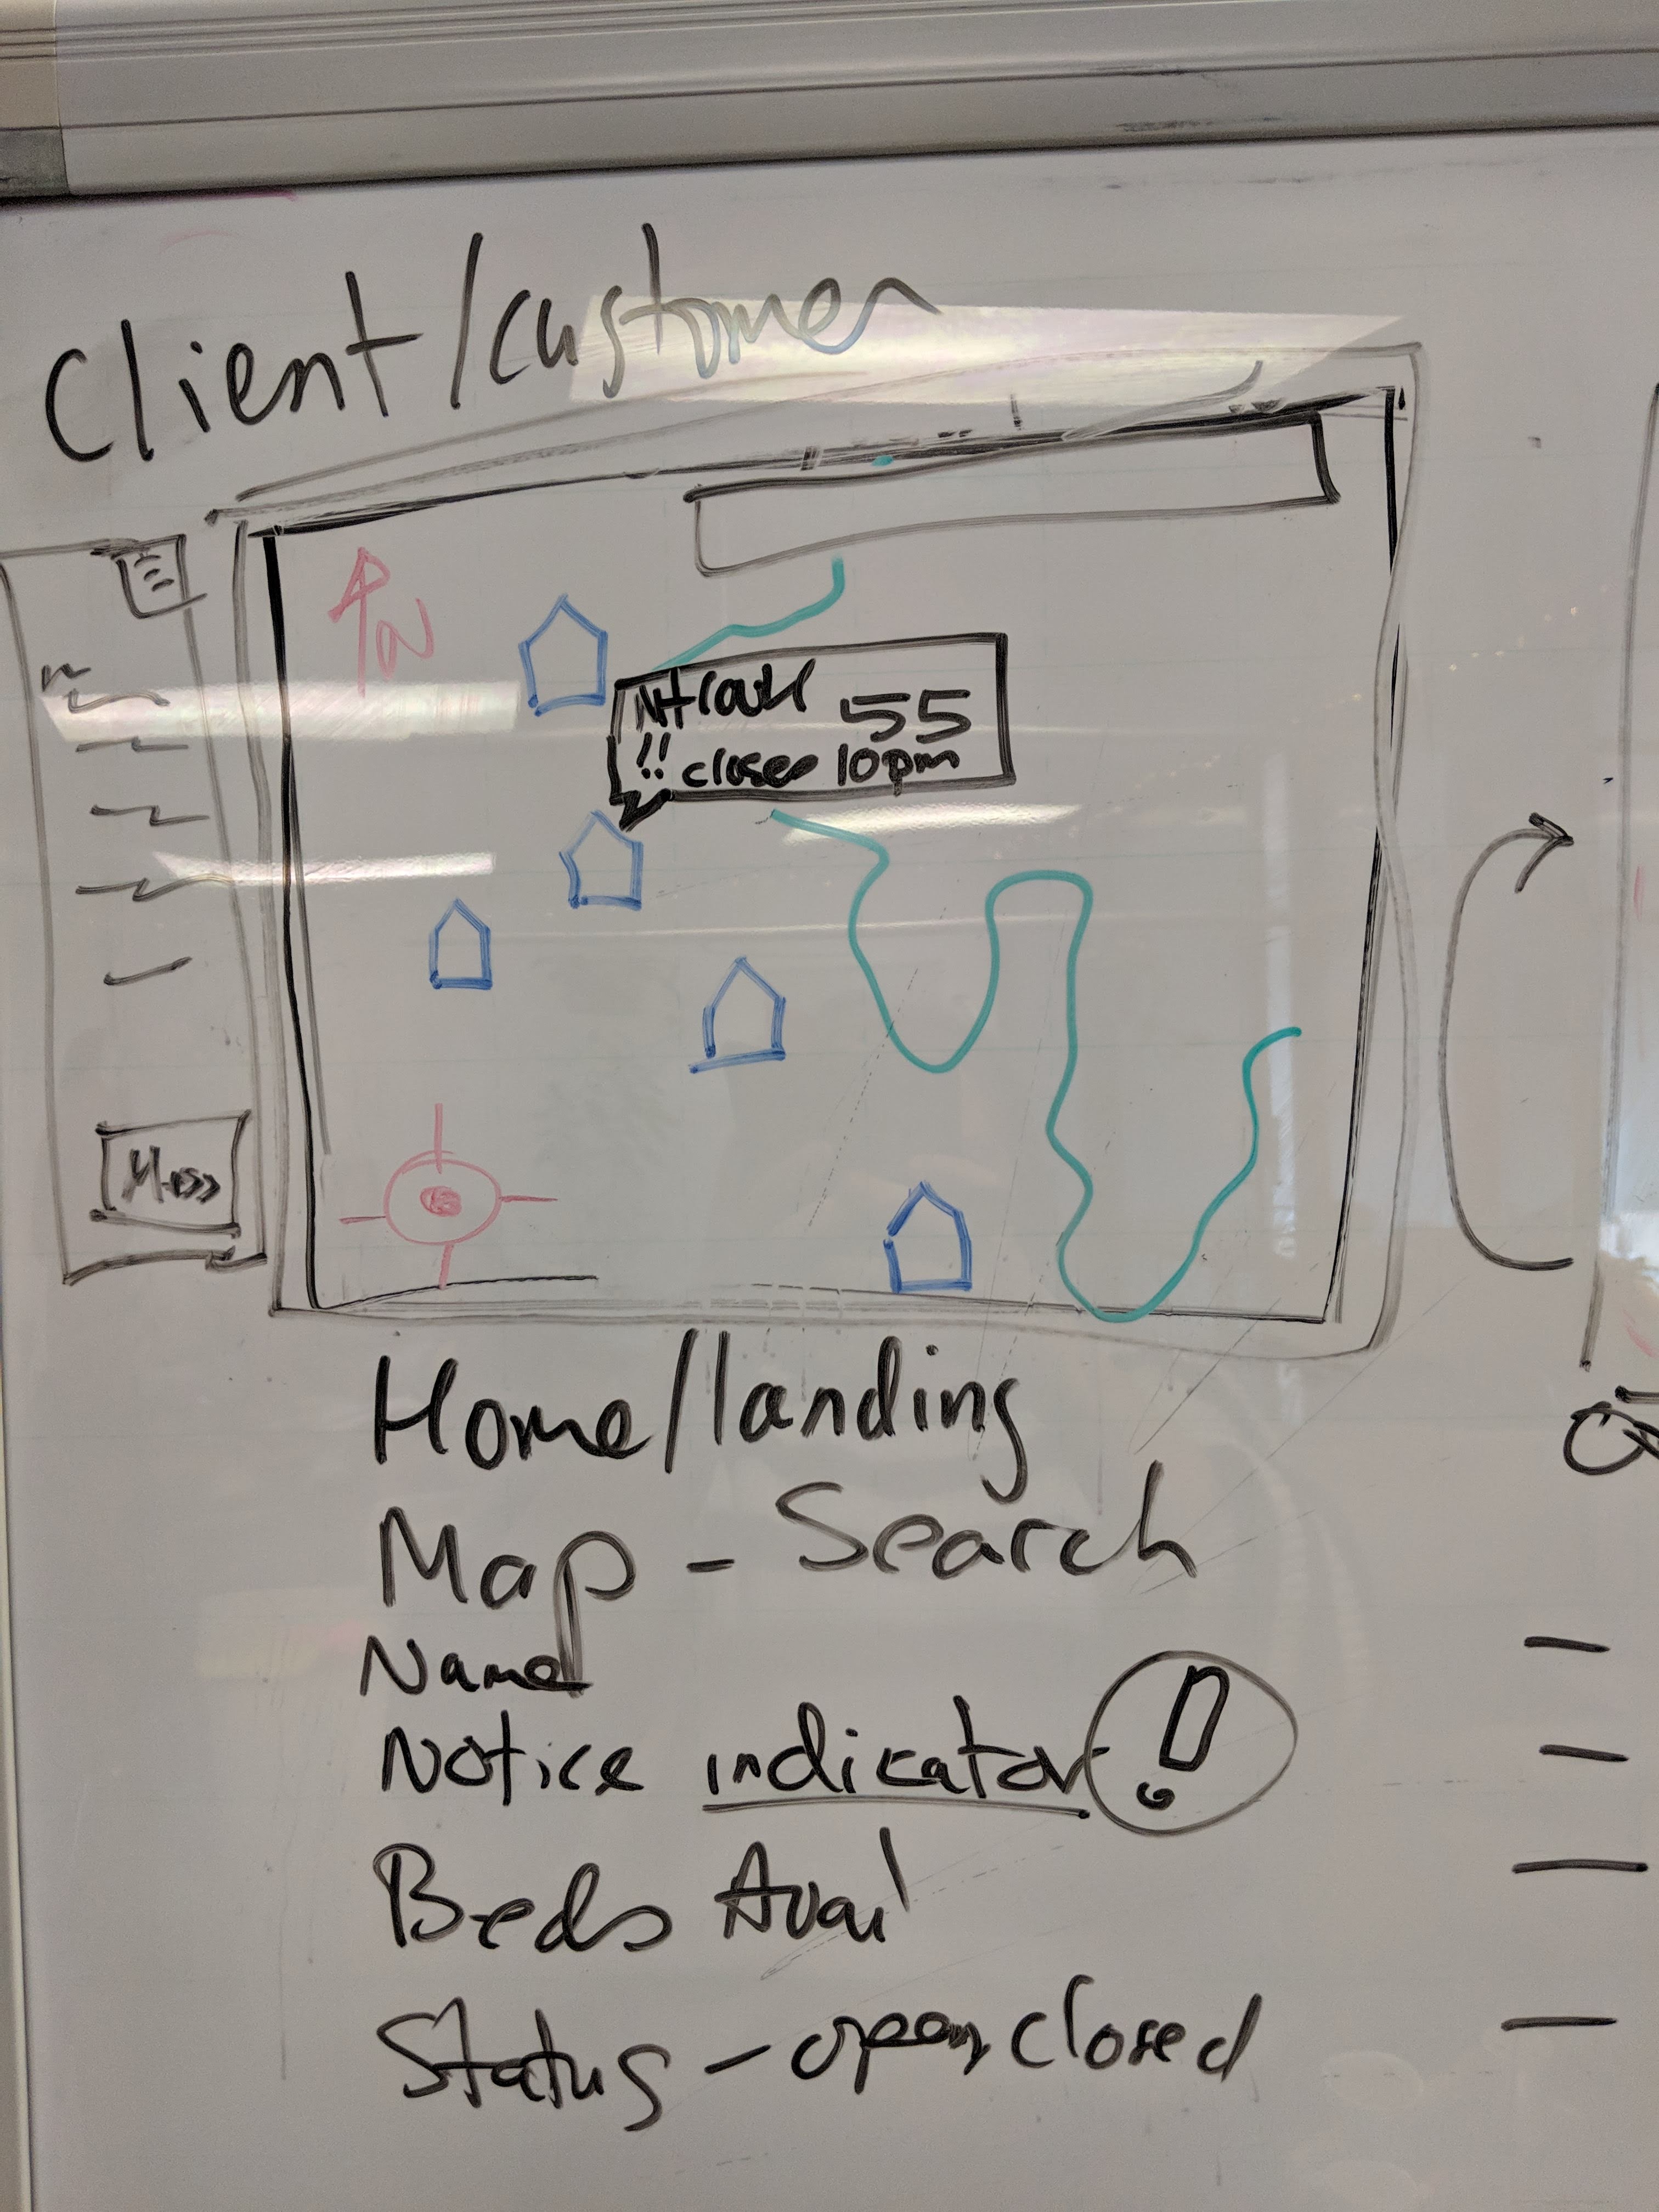 Client/customer
N
55
!! closes 10pm
Home/landing
Map - Search
Name
Notice indicator !
Beds Avail
Status - open, closed